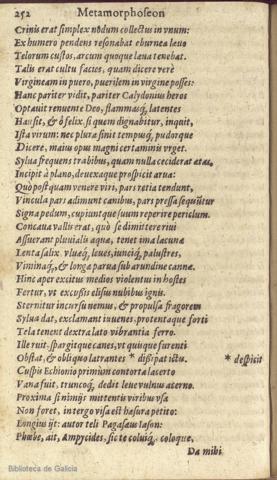 252 Metamorphoseon
Crinis erat simplex nodum collectus in vnum:
Ex humero pendens resonabat eburnea læuo
Telorum custos, arcum quoque læua tenebat.
Talis erat cultu facies, quam dicere verè
Virgineam in puero, puerilem in virgine posses:
Hanc pariter vidit, pariter Calydonius heros
Optauit renuente Deo, flammasq́, latentes
Hausit, & ô felix, si quem dignabitur, inquit,
Ista virum: nec plura sinit tempusq́, pudorque
Dicere, maius opus magni certaminis vrget.
Sylua frequens trabibus, quam nulla ceciderat ætas,
Incipit à plano, deuexaque prospicit arua:
Quò postquam venere viri, pars retia tendunt,
Vincula pars adimunt canibus, pars pressa sequūtur
Signa pedum, cupiuntque suum reperire periclum.
Concaua vallis erat, quò se dimittere riui
Assuerant pluuialis aquæ, tenet ima lacunæ
Lenta salix vluæq́, leues, iunciq́, palustres,
Viminaq́, & longa parua sub arundine cannæ.
Hinc aper excitus medios violentus in hostes
Fertur, vt excussis elisus nubibus ignis.
Sternitur incursu nemus, & propulsa fragorem
Sylua dat, exclamant iuuenes, protentaque forti
Tela tenent dextra lato vibrantia ferro.
Ille ruit, spargitque canes, vt quisque furenti
Obstat, & obliquo latrantes * dißipat ictu. * despicit
Cuspis Echionio primùm contorta lacerto
Vana fuit, truncoq́, dedit leue vulnus acerno.
Proxima si nimijs mittentis viribus vsa
Non foret, in tergo visa est hæsura petito:
Longius ijt: autor teli Pagasæus Iason:
Phœbe, ait, Ampycides, si te coluiq́, coloque,
Da mihi
Biblioteca de Galicia